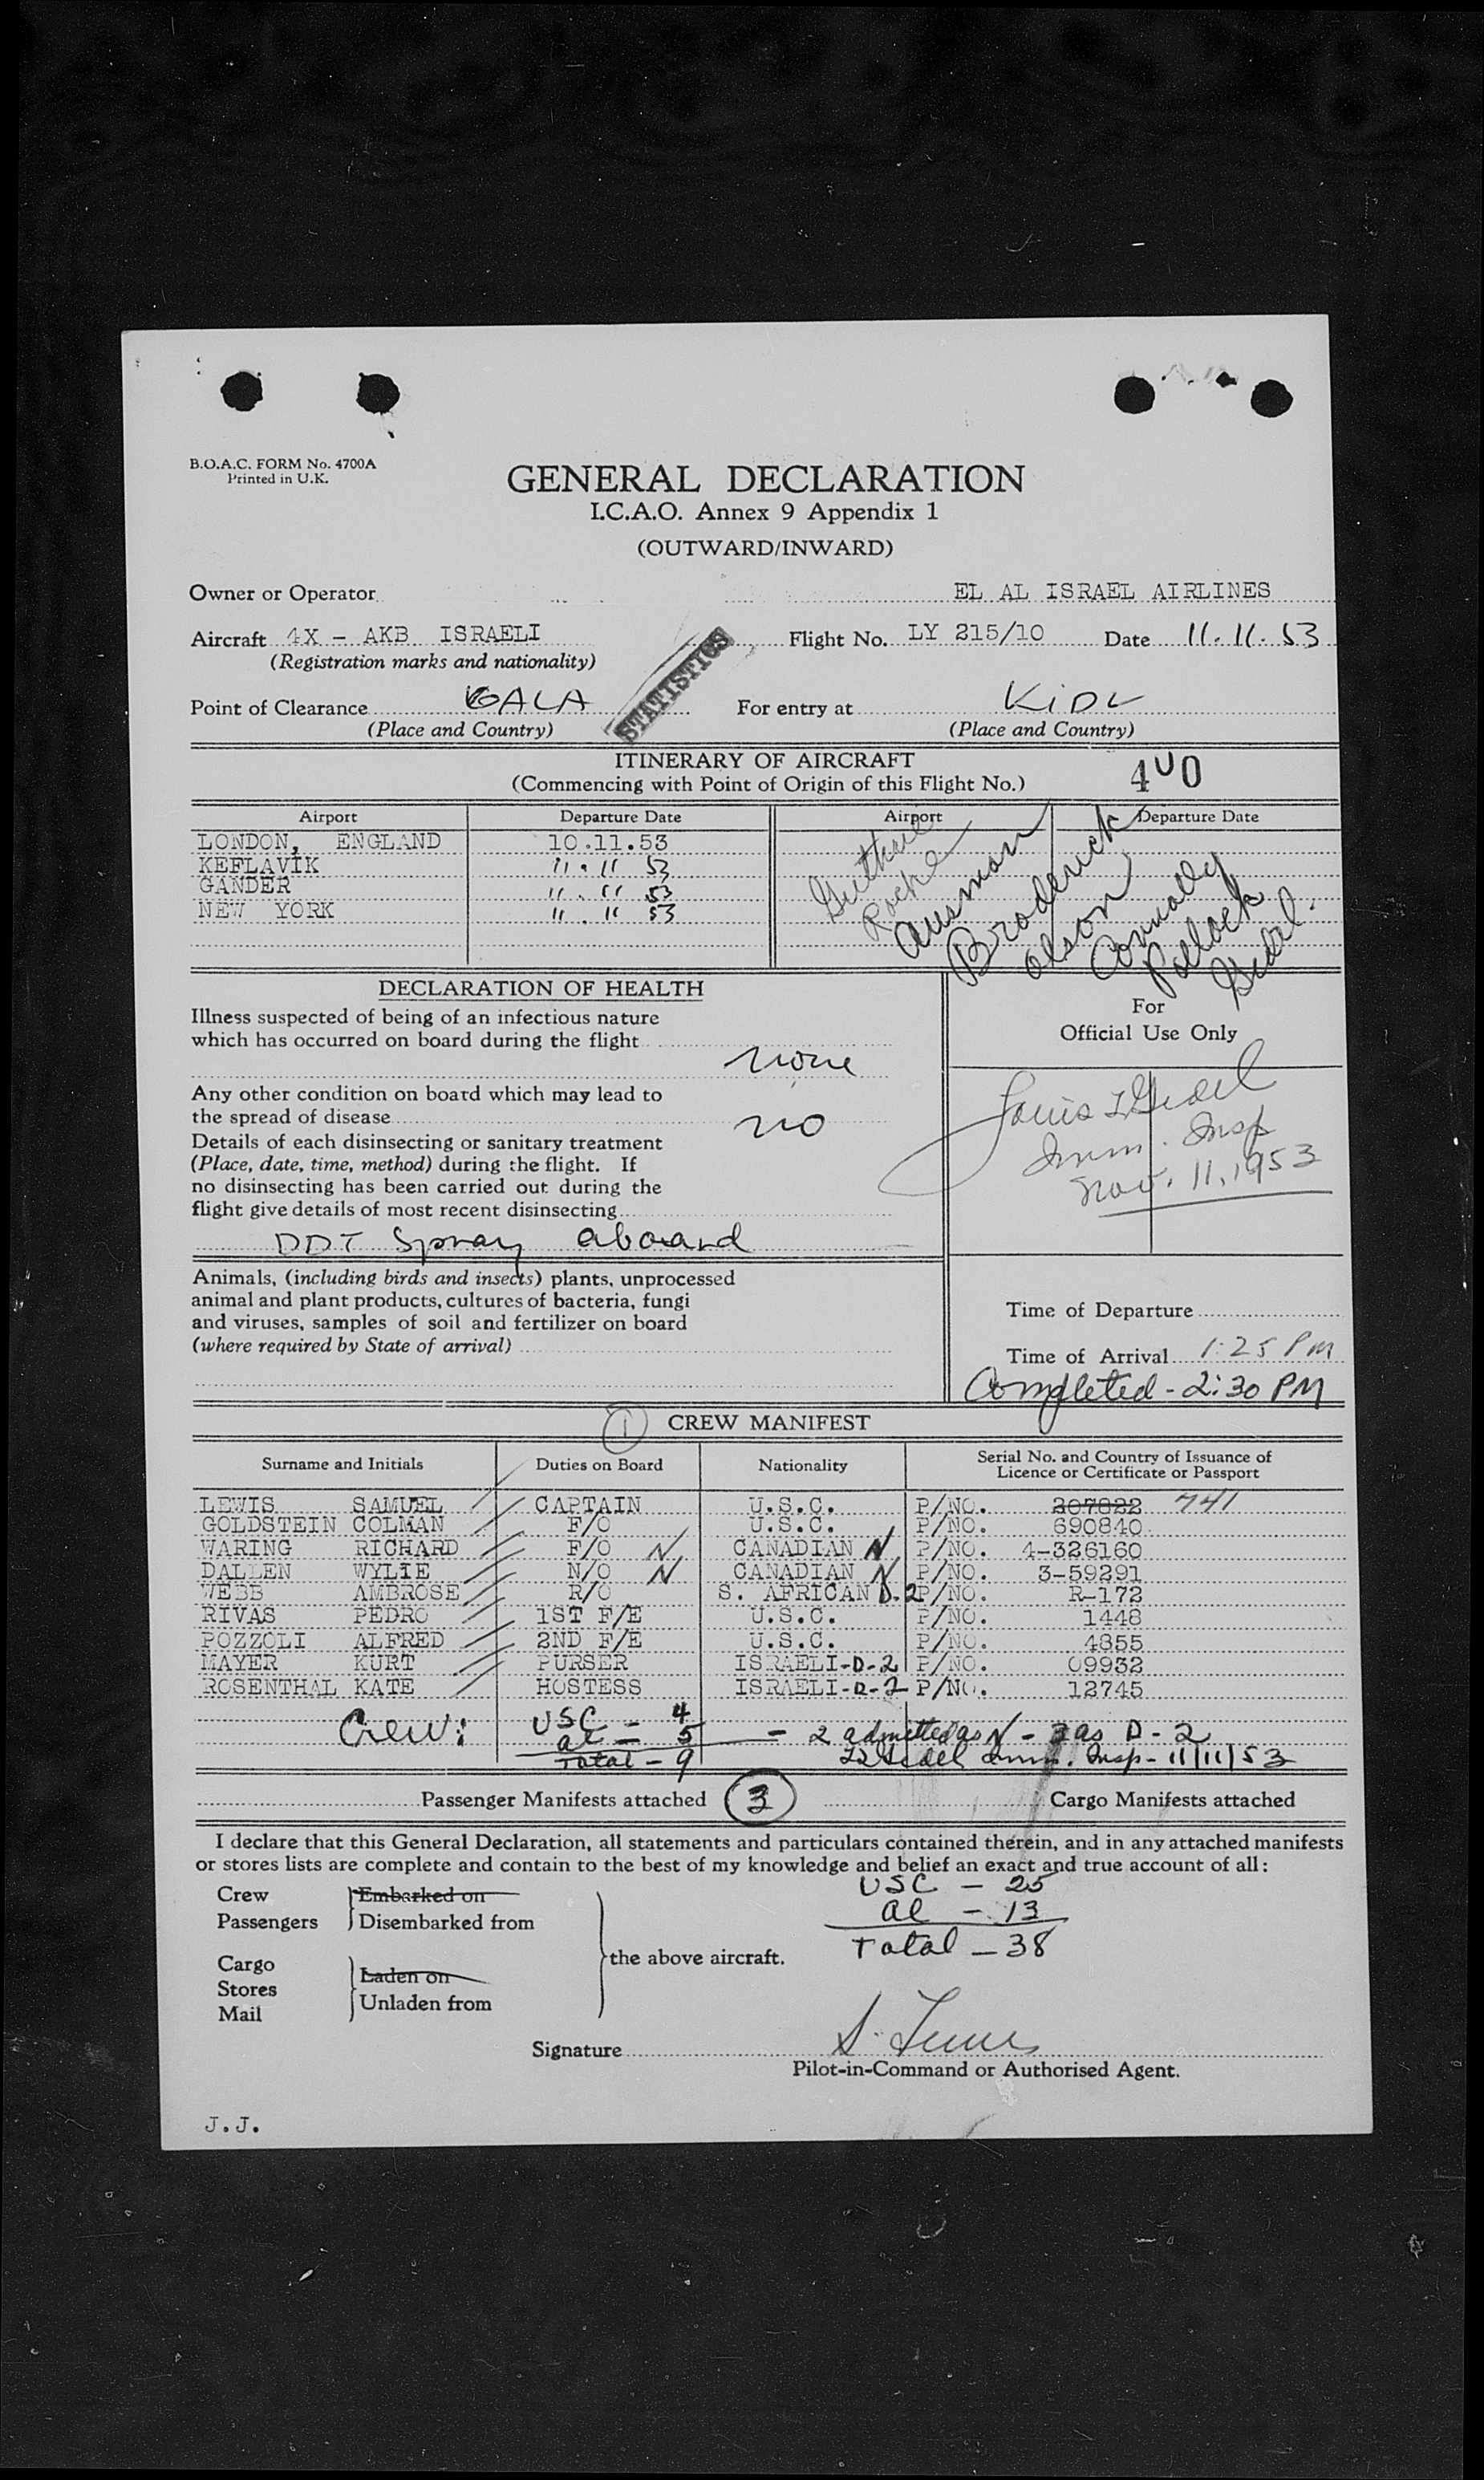 B.O.A.C. FORM No. 4700A
Printed in U.K.
GENERAL DECLARATION
I.C.A.O. Annex 9 Appendix 1
(OUTWARD/INWARD)
Owner or Operator EL AL ISRAEL AIRLINES
Aircraft 4X - AKB ISRAELI Flight No. LY 215/10 Date 11.11.53
(Registration marks and nationality)
STATISTICS
Point of Clearance GALA For entry at KIDL
(Place and Country) (Place and Country)
ITINERARY OF AIRCRAFT
(Commencing with Point of Origin of this Flight No.) 400
Airport Departure Date Airport Departure Date
LONDON, ENGLAND 10.11.53
KEFLAVIK 11.11 53
GANDER 11.11 53
NEW YORK 11.11 53
Guthrie
Roche
Ausman
Broderick
Olson
Connally
Pollack
Gidel.
DECLARATION OF HEALTH
Illness suspected of being of an infectious nature
which has occurred on board during the flight none
Any other condition on board which may lead to
the spread of disease no
Details of each disinsecting or sanitary treatment
(Place, date, time, method) during the flight. If
no disinsecting has been carried out during the
flight give details of most recent disinsecting
DDT Spray aboard
For
Official Use Only
Louis L Gidel
Imm. Insp
Nov. 11, 1953
Animals, (including birds and insects) plants, unprocessed
animal and plant products, cultures of bacteria, fungi
and viruses, samples of soil and fertilizer on board
(where required by State of arrival)
Time of Departure
Time of Arrival 1:25 PM
Completed - 2:30 PM
1 CREW MANIFEST
Surname and Initials Duties on Board Nationality Serial No. and Country of Issuance of Licence or Certificate or Passport
LEWIS SAMUEL CAPTAIN U.S.C. P/NO. 207822 741
GOLDSTEIN COLMAN F/O U.S.C. P/NO. 690840
WARING RICHARD F/O N CANADIAN N P/NO. 4-326160
DALLEN WYLIE N/O N CANADIAN N P/NO. 3-59291
WEBB AMBROSE R/O S. AFRICAN D.2 P/NO. R-172
RIVAS PEDRO 1ST F/E U.S.C. P/NO. 1448
POZZOLI ALFRED 2ND F/E U.S.C. P/NO. 4855
MAYER KURT PURSER ISRAELI-D-2 P/NO. 09932
ROSENTHAL KATE HOSTESS ISRAELI-D-2 P/NO. 12745
Crew: USC - 4
al - 5 - 2 admitted as N - 3 as D-2
Total - 9 LL Gidel Imm. Insp - 11/11/53
Passenger Manifests attached 3 Cargo Manifests attached
I declare that this General Declaration, all statements and particulars contained therein, and in any attached manifests
or stores lists are complete and contain to the best of my knowledge and belief an exact and true account of all:
Crew Embarked on
Passengers Disembarked from
Cargo
Stores Laden on
Mail Unladen from
the above aircraft.
USC - 25
al - 13
Total - 38
Signature S. Lewis
Pilot-in-Command or Authorised Agent.
J.J.